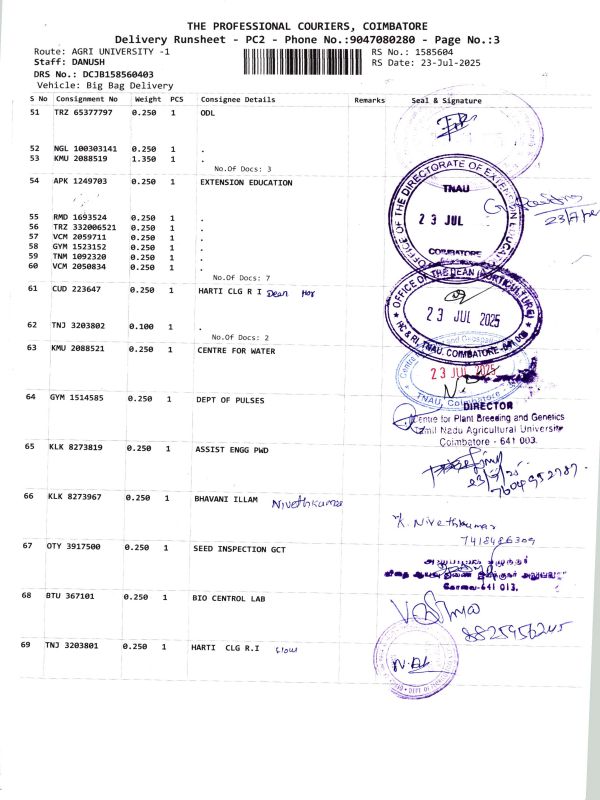 THE PROFESSIONAL COURIERS, COIMBATORE
Delivery Runsheet - PC2 - Phone No.:9047080280 - Page No.:3
Route: AGRI UNIVERSITY -1
RS No.: 1585604
Staff: DANUSH
RS Date: 23-Jul-2025
DRS No.: DCJB158560403
Vehicle: Big Bag Delivery
S No Consignment No Weight PCS Consignee Details Remarks Seal & Signature
51 TRZ 65377797 0.250 1 ODL
52 NGL 100303141 0.250 1 .
53 KMU 2088519 1.350 1 .
No.Of Docs: 3
54 APK 1249703 0.250 1 EXTENSION EDUCATION
OFFICE OF THE DIRECTORATE OF EXTENSION
TNAU
23 JUL
COIMBATORE
55 RMD 1693524 0.250 1 .
56 TRZ 332006521 0.250 1 .
57 VCM 2059711 0.250 1 .
58 GYM 1523152 0.250 1 .
59 TNM 1092320 0.250 1 .
60 VCM 2050834 0.250 1 .
No.Of Docs: 7
61 CUD 223647 0.250 1 HARTI CLG R I Dean Hor
OFFICE OF THE DEAN (HORTICULTURE)
23 JUL 2025
HC & RI, TNAU, COIMBATORE - 641 003
62 TNJ 3203802 0.100 1 .
No.Of Docs: 2
63 KMU 2088521 0.250 1 CENTRE FOR WATER
23 JUL 2025
TNAU, Coimbatore
64 GYM 1514585 0.250 1 DEPT OF PULSES
DIRECTOR
Centre for Plant Breeding and Genetics
Tamil Nadu Agricultural University
Coimbatore - 641 003.
65 KLK 8273819 0.250 1 ASSIST ENGG PWD
7604952787.
66 KLK 8273967 0.250 1 BHAVANI ILLAM Nivethkumar
K. Nivethkumar
7418486309
67 OTY 3917500 0.250 1 SEED INSPECTION GCT
கோவை-641 013.
68 BTU 367101 0.250 1 BIO CENTROL LAB
8825956245
69 TNJ 3203801 0.250 1 HARTI CLG R.I